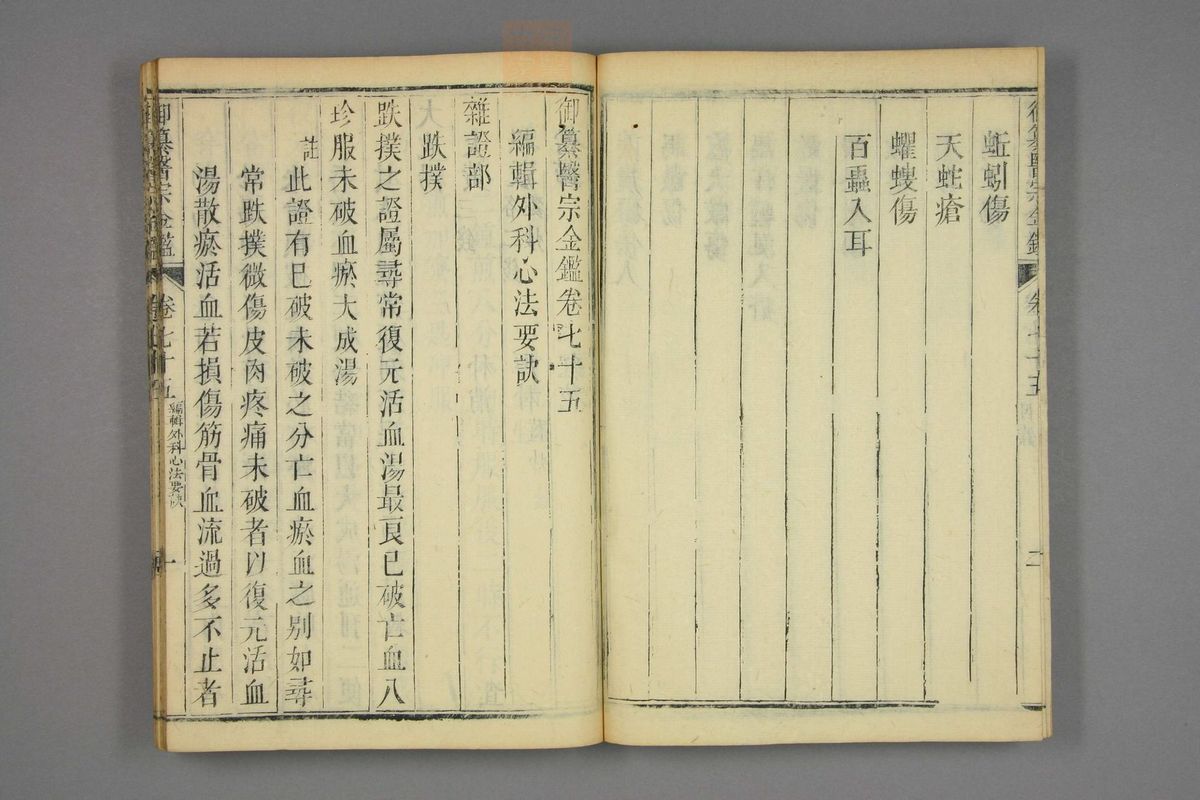 御纂醫宗金鑑
卷七十五
二
蚯蚓傷
天蛇瘡
蠼螋傷
百蟲入耳
御纂醫宗金鑑卷七十五
編輯外科心法要訣
雜證部
跌撲
跌撲之證屬尋常復元活血湯最良已破亡血八
珍服未破血瘀大成湯
註
此證有已破未破之分亡血瘀血之别如尋
常跌撲微傷皮肉疼痛未破者以復元活血
湯散瘀活血若損傷筋骨血流過多不止者
御纂醫宗金鑑
卷七十五
編輯外科心法要訣
一